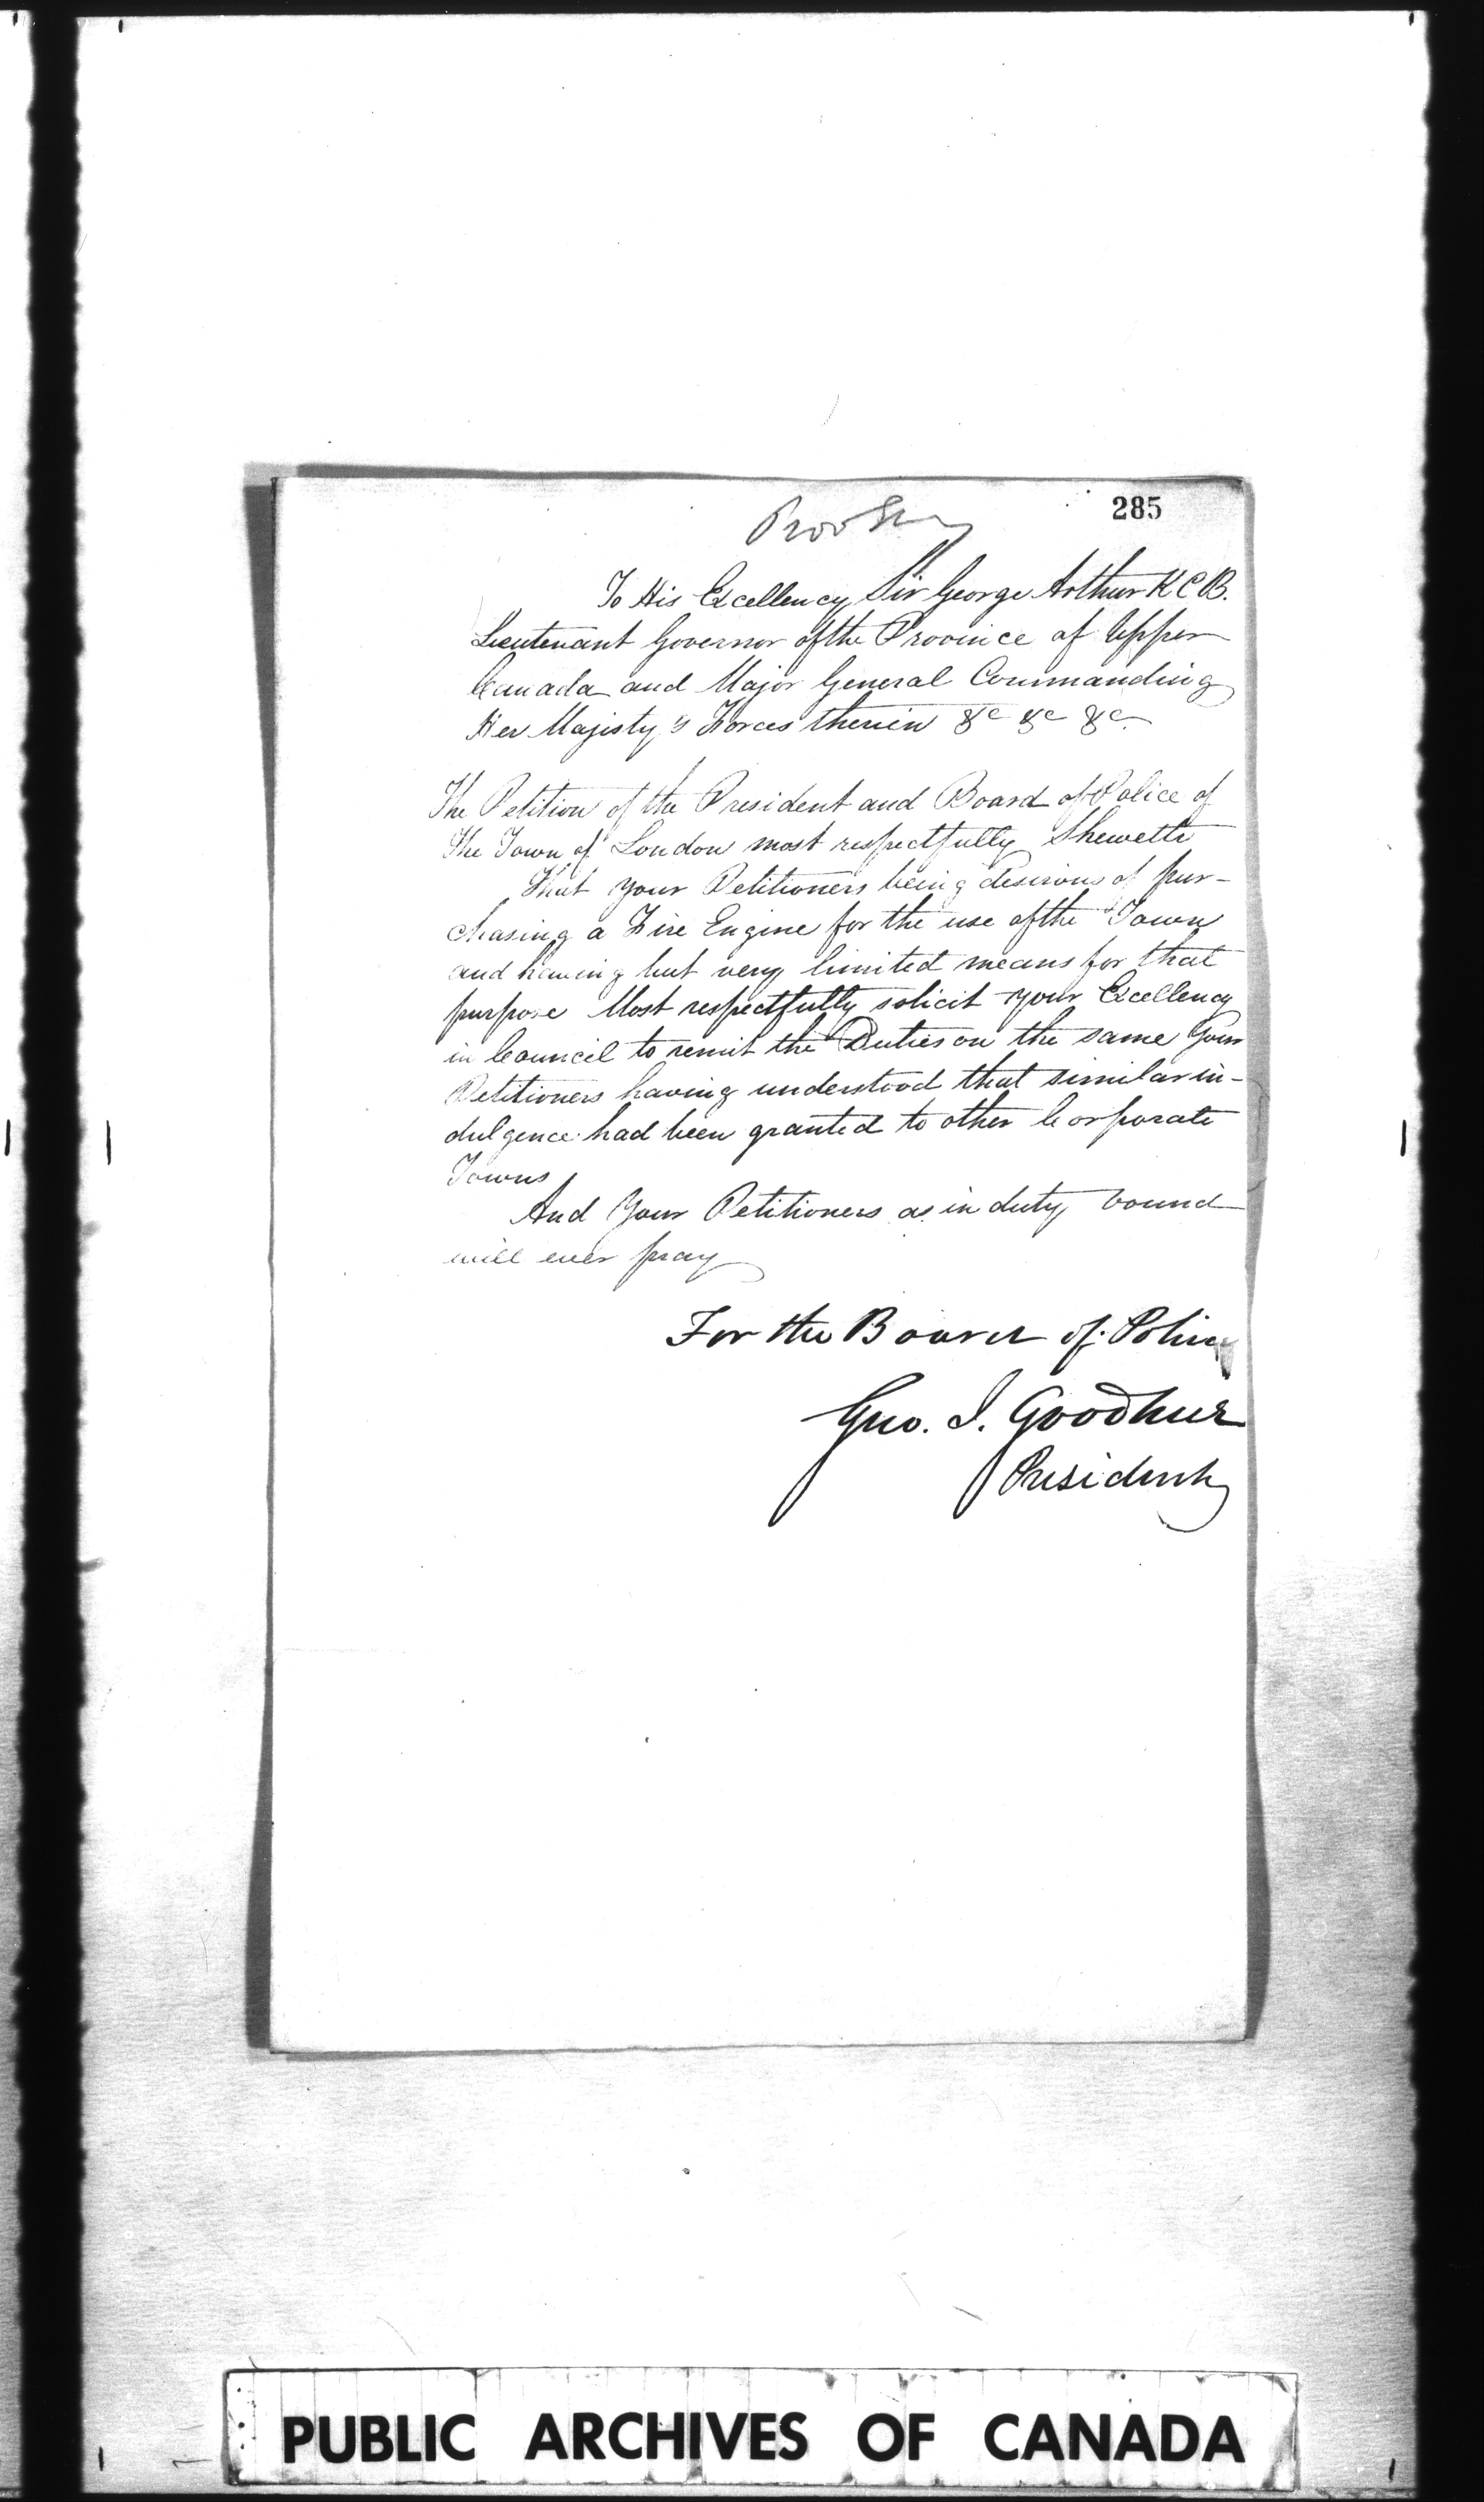 285
To His Excellency Sir George Arthur K C B.
Lieutenant Governor of the Province of Upper
Canada and Major General Commanding
Her Majesty's Forces therein &c &c &c
The Petition of the President and Board of Police of
the Town of London most respectfully Sheweth
That your Petitioners being desirous of pur-
chasing a Fire Engine for the use of the Town
and having but very limited means for that
purpose Most respectfully solicit your Excellency
in Council to remit the Duties on the same Your
Petitioners having understood that similar in-
dulgence had been granted to other Corporate
Towns
And Your Petitioners as in duty bound
will ever pray
For the Board of Police
Geo. J. Goodhue
President
PUBLIC ARCHIVES OF CANADA